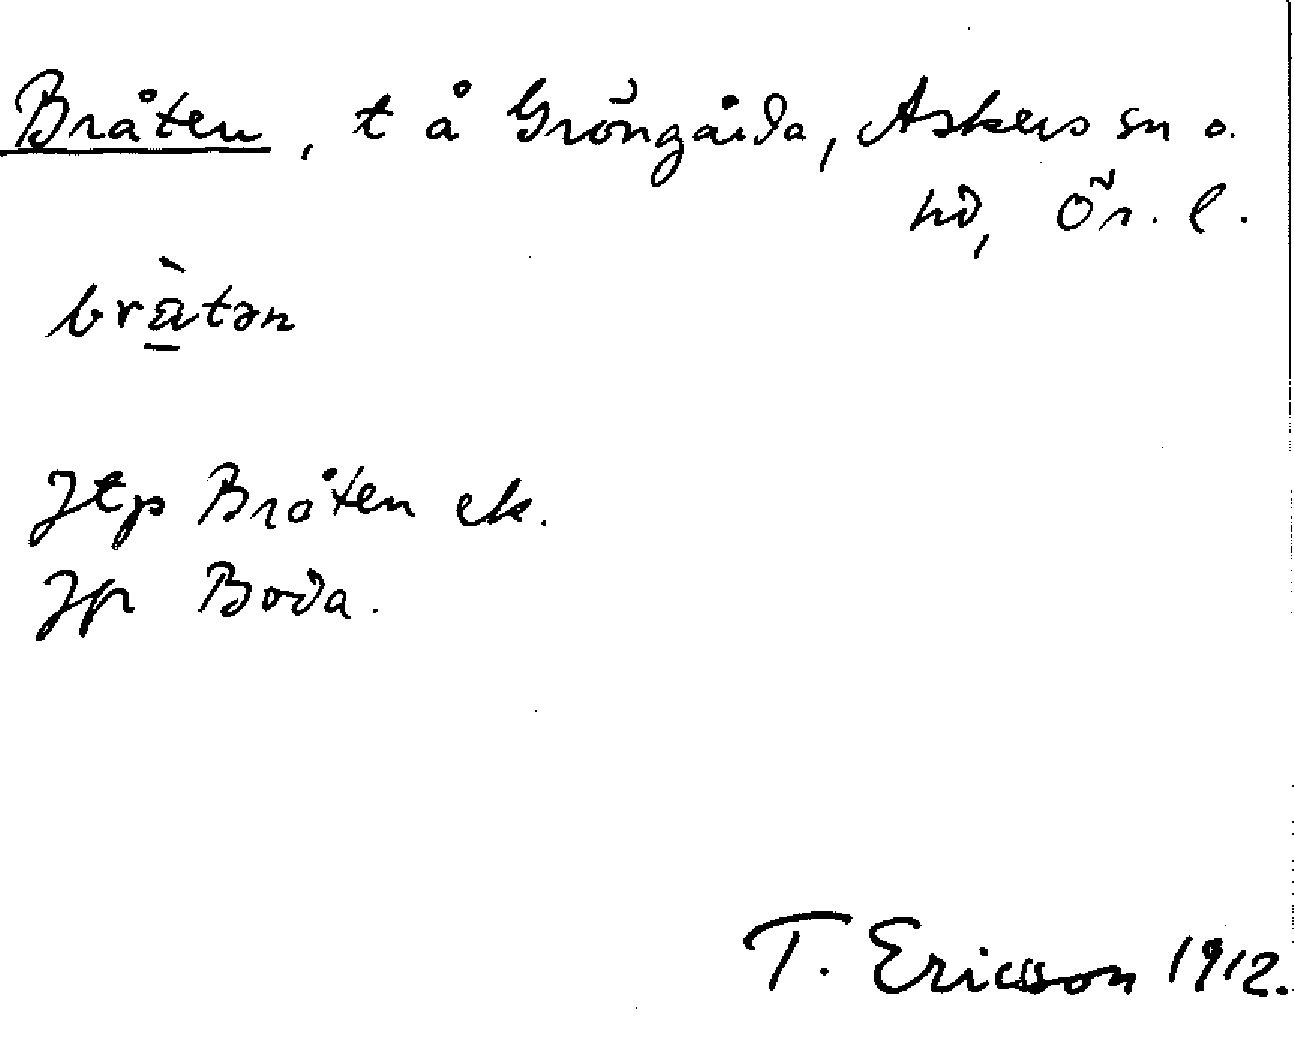 Bråten, t å Gröngåda, Askers sn o.
hd, Ör. l.
bràtən
Jtp Bråten ek.
Jfr Boda.
T. Ericsson 1912.